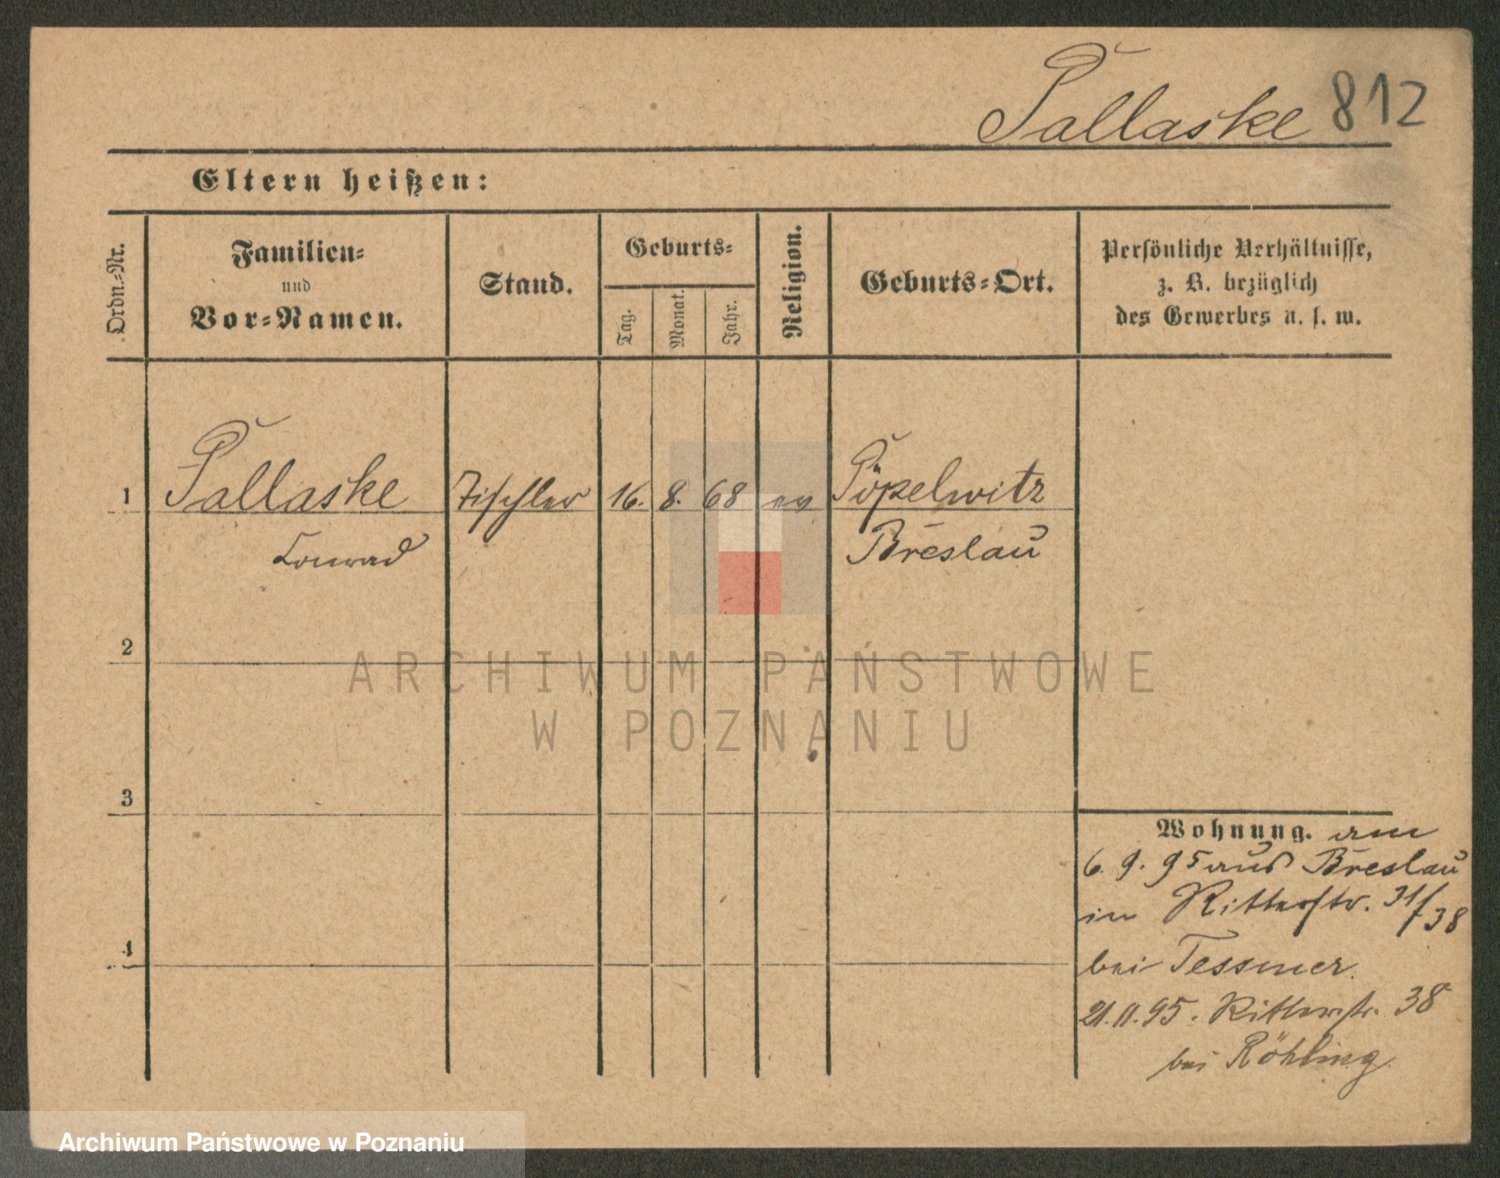 Pallaske 812
Eltern heißen:
Ordn.-Nr.
Familien-
und
Vor-Namen.
Stand.
Geburts-
Tag.
Monat.
Jahr.
Religion.
Geburts-Ort.
Persönliche Verhältnisse,
z. B. bezüglich
des Gewerbes u. s. w.
1 Pallaske Tischler 16. 8. 68 ev Pöpelwitz
Conrad Breslau
2
ARCHIWUM PAŃSTWOWE
W POZNANIU
3
Wohnung. am
6. 9. 95 aus Breslau
in Ritterstr. 31/38
4
bei Tessmer.
21.11.95. Ritterstr. 38
bei Röhling.
Archiwum Państwowe w Poznaniu